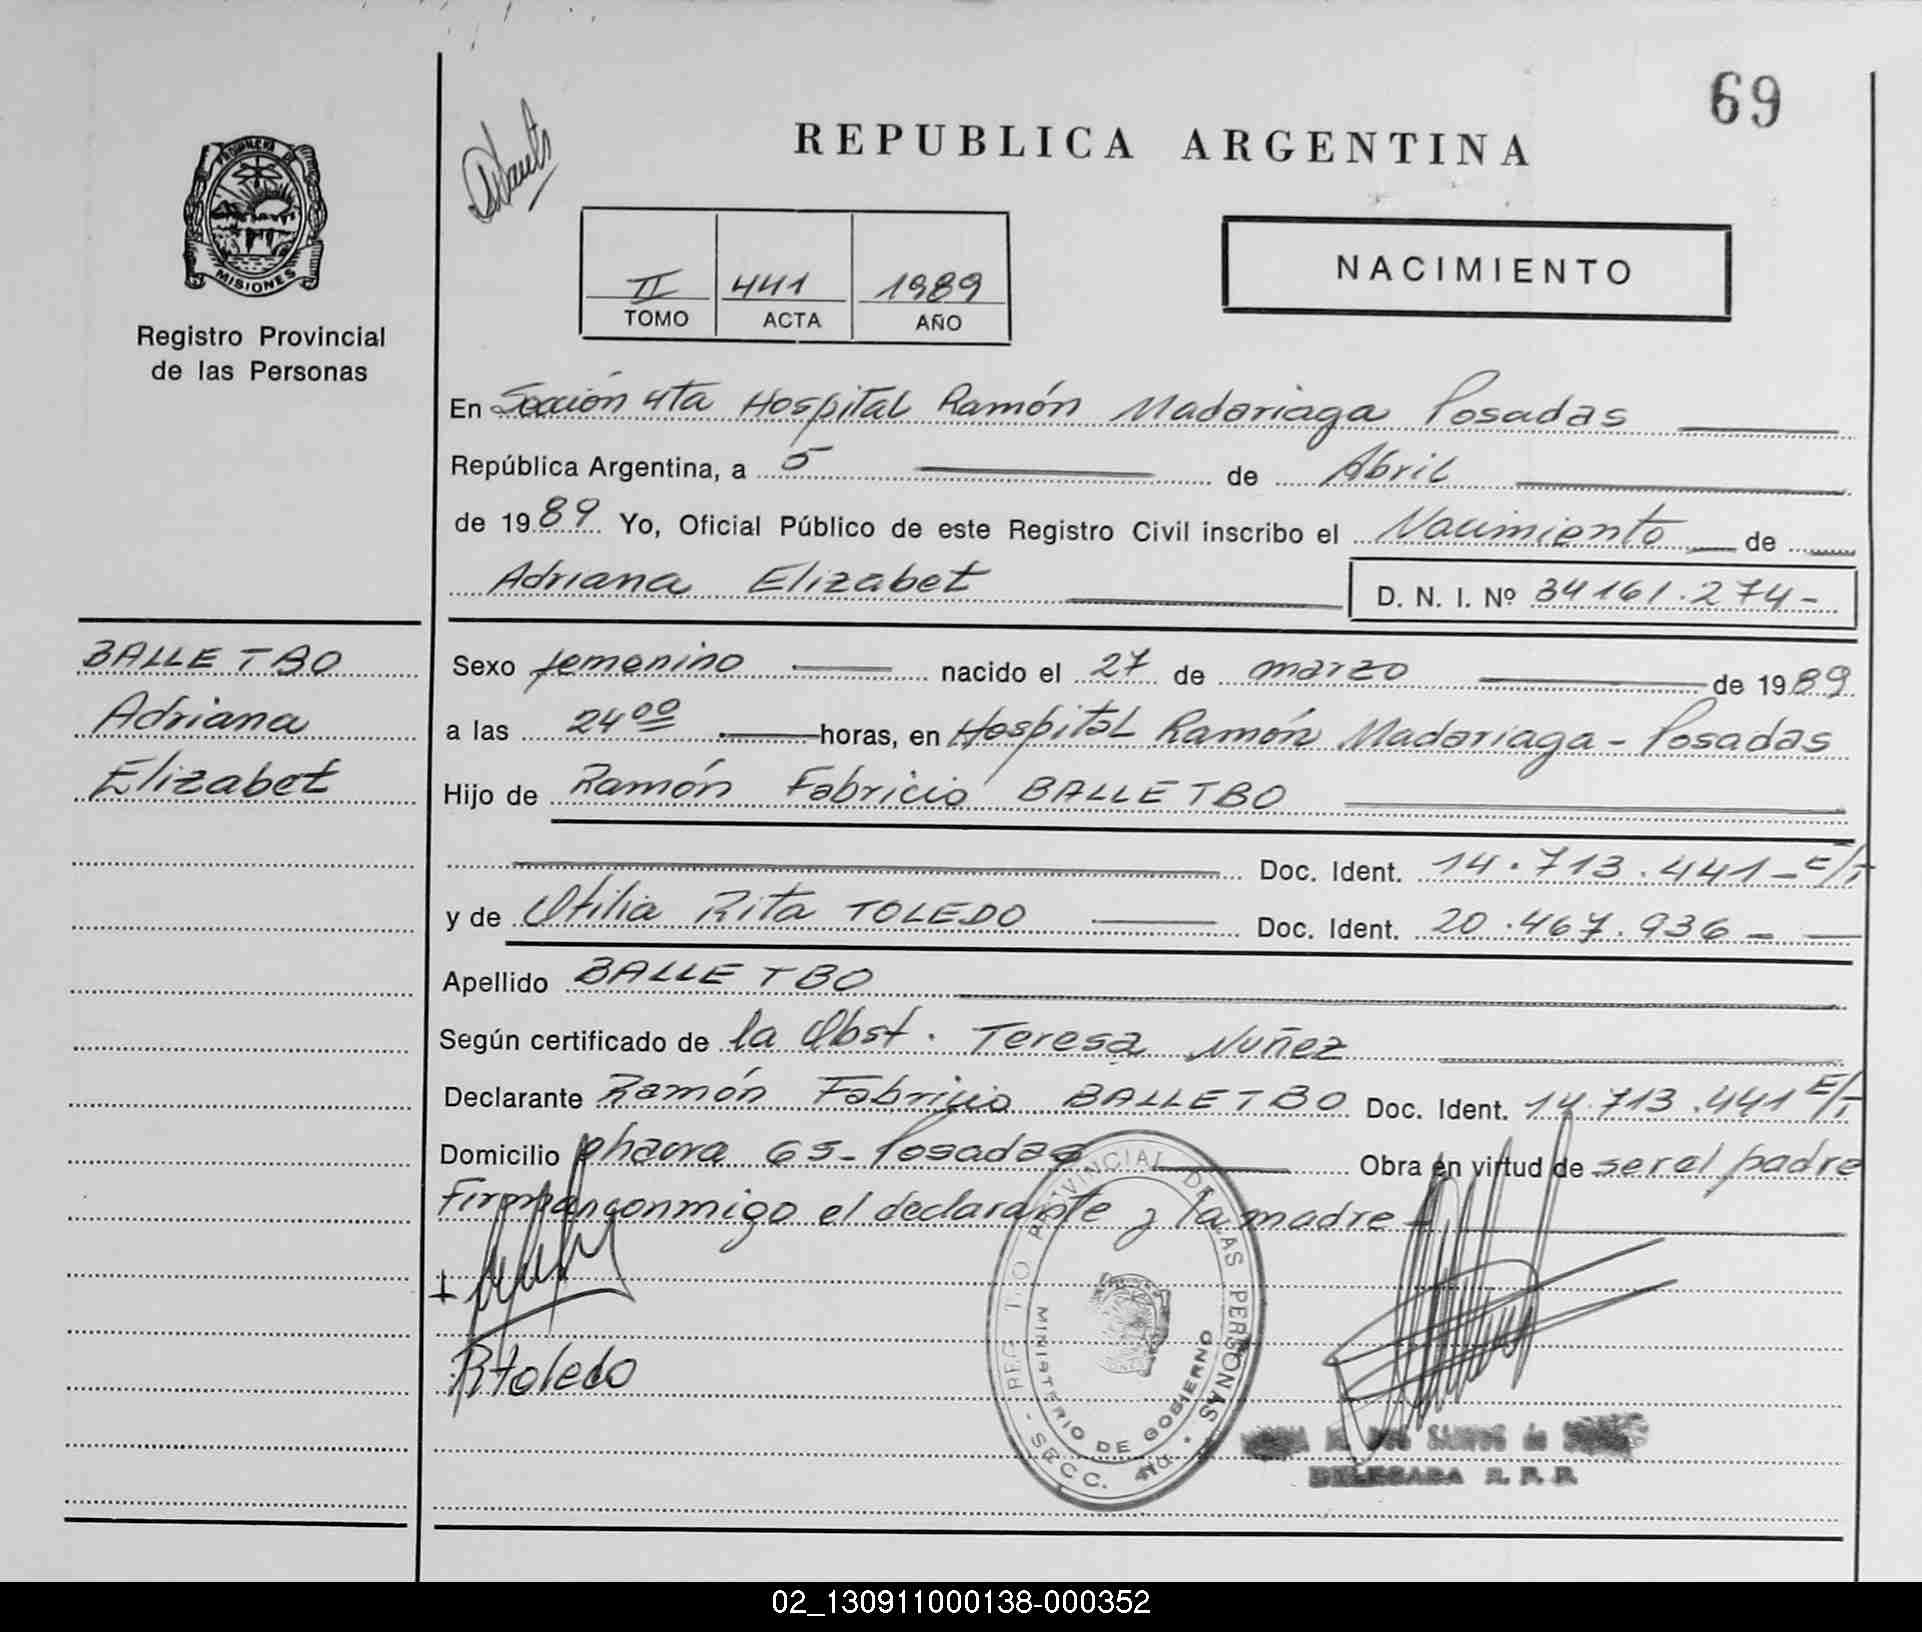 69
REPUBLICA ARGENTINA
PROVINCIA DE
MISIONES
Registro Provincial
de las Personas
II 441 1989
TOMO ACTA AÑO
NACIMIENTO
En Sección 4ta Hospital Ramón Madariaga Posadas
República Argentina, a 5 de Abril
de 1989 Yo, Oficial Público de este Registro Civil inscribo el Nacimiento de
Adriana Elizabet D. N. I. Nº 34161.274-
BALLETBO
Adriana
Elizabet
Sexo femenino nacido el 27 de marzo de 1989
a las 2400 horas, en Hospital Ramón Madariaga - Posadas
Hijo de Ramón Fabricio BALLETBO
Doc. Ident. 14.713.441-E/T
y de Otilia Rita TOLEDO Doc. Ident. 20.467.936-
Apellido BALLETBO
Según certificado de la Obst. Teresa Nuñez
Declarante Ramón Fabricio BALLETBO Doc. Ident. 14.713.441 E/T
Domicilio 65- Posadas Obra en virtud de ser el padre
Firman conmigo el declarante y la madre-
RToledo
REGISTRO PROVINCIAL DE LAS PERSONAS
MINISTERIO DE GOBIERNO
SECC. 4ta.
DOS SANTOS de
DELEGADA R. P. P.
02_130911000138-000352